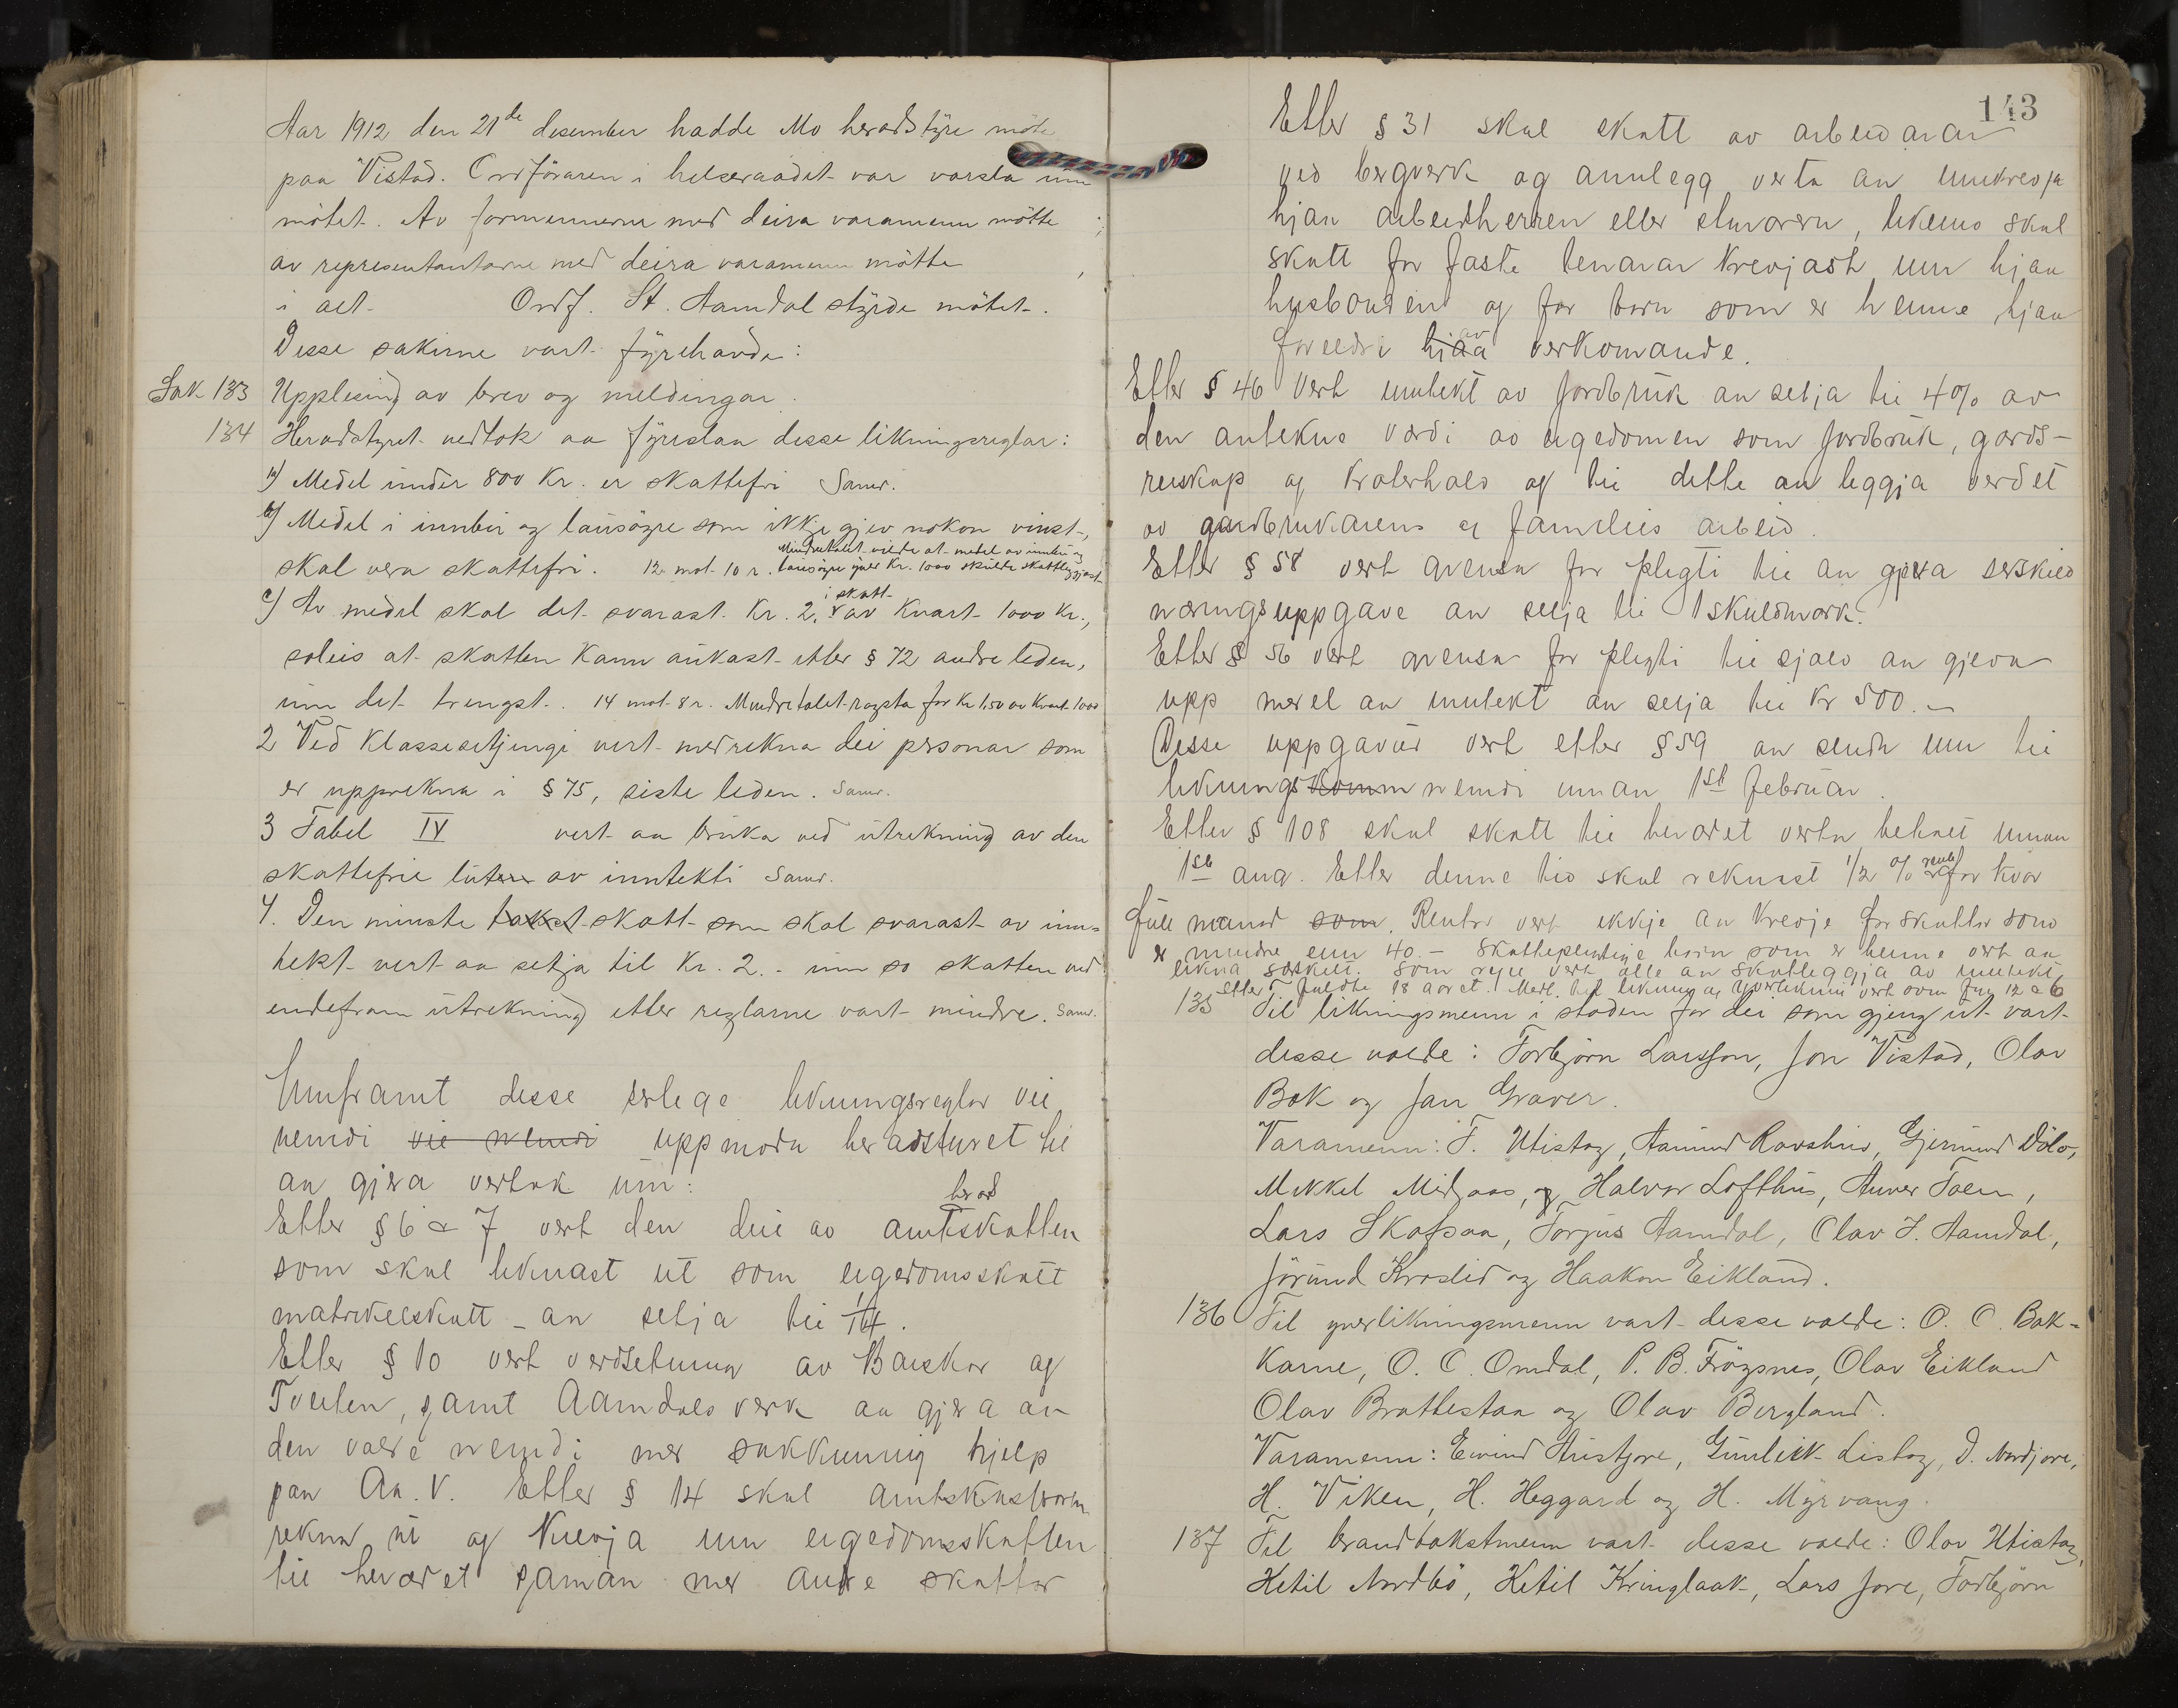 Aar 1912 den 21de desember hadde Mo heradstyre møte
paa Vistad. Ordföraren i helseraadet var varsla um
mötet. Av formennerne med deira varamenn mötte ;
av representantarne med deira varamenn mötte ,
i alt Ordf. St. Aamdal styrde mötet.
Desse sakirne vart fyrehavde:
Sak 133 Upplesing av brev og meldingar.
134 Heradstyret vedtok aa fyreslaa desse likningsreglar:
1a) Medel under 800 Kr. er skattefri Samr.
b) Medel i innbu og lausöyre som ikkje gjev nokon vinst,
skal vera skattefri. 12 mot 10 r. Mindretalet vilde at medel av innbu og
lausöyre yver Kr. 1000 skulde skattleggjast
c) Av medel skal det svarast Kr. 2, i skatt av kvart 1000 Kr.,
soleis at skatten kann aukast etter § 72 andre leden,
um det trengst. 14 mot 8 r. Mindretalet røysta for Kr 1,50 av kvart 1000
2 Ved klassesetjingi vert medrekna dei personar som
er upprekna i § 75, siste leden. Samr.
3 Tabel IV vert aa bruka ved utrekning av den
skattefrie luten av inntekti Samr.
4. Den minste takst skatt som skal svarast av inn=
tekt vert aa setja til Kr. 2.- um so skatten ved
endefram utrekning etter reglarne vart mindre. Samr.
Umframt desse serlege likningsreglar vil
nemdi vil nemdi uppmoda heradsturet til
aa gjera vertak um:
Etter § 6 & 7 vert den dei av amtskatten herad
som skal liknast ut som eigedomsskatt
matrikelskatt – aa setja til 1/4.
Etter § 10 vert verdsetning av Barskor og
Tveiten, samt Aamdals verk aa gjera av
den valde nemdi med sakkunnig hjelp
paa Aa. V. Etter § 14 skal amtskasseraren
rekna ut og krevja inn eigedomsskatten
til heradet saman med andre skattar
143
Etter § 31 skal skatt av arbeidarar
ved bergverk og annlegg verta aa innkrevja
hjaa arbeidsherren eller stmoren, likeins skal
skatt for faste tenarar krevjast inn hjaa
husbonden og for born som er heime hjaa
foreldri hjaa av verkomande.
Etter § 46 vert inntekt av jordbruk aa setja til 4% av
den antekne verdi av eigedomen som jordbruk, gards-
reiskap og krøterhald og til dette aa leggja verdet
av gardbrukarens og familiens arbeid.
Etter § 58 vert grensa for plegti til aa gjera serskild
næringsuppgave aa setja til 1 skuldmark.
Etter § 56 vert grensa for plegti til sjølv aa gjeva
upp medel aa inntekt aa setja til Kr 500.–
Desse uppgavur vert etter § 59 aa senda inn til
liknings komm nemdi innan 1st februar.
Etter § 108 skal skatt til heradet verta betalt innan
1st aug. Etter denne tid skal reknast 1/2 % rente for kvar
full maanad som. Rentor vert ikkje aa krevje for skattar som
er mindre enn 40.– Skattepligtige born som er heime vert aa
likna serskilt. Som regel vert alle aa skatleggja av inntekt
etter fyllte 18 aaret. Medl. tal likning og yverlikning vert som fyrr 12 & 6
135 Til likningsmenn i staden for dei som gjeng ut vart
desse valde: Torbjörn Larsson, Jon Vistad, Olav
Bak og Jan Graver.
Varamenn: T. Utistog, Aamund Ravshus, Gjermund Dölo,
Mikkel Midjaas, og Halvor Lofthus, Anver Toen,
Lars Skofsaa, Torjus Aamdal, Olav J. Aamdal,
Jörund Kroslid og Haakon Eikland.
136 Til yverlikningsmenn vart desse valde: O. C. Bak-
karne, O. C. Omdal, P. B. Fröysnes, Olav Eikland
Olav Brattestaa og Olav Bergland.
Varamenn: Eivind Austjore, Gunleik Listog, D. Nordjore,
H. Viken, H. Heggard og H. Myrvang.
137 Til brandtakstmenn vart desse valde: Olav Utistog,
Ketil Nordbö, Ketil Kringlaak, Lars Jore, Torbjörn